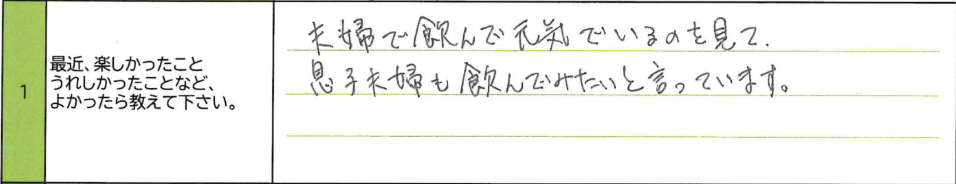 1
最近、楽しかったこと
うれしかったことなど、
よかったら教えて下さい。
夫婦で飲んで元気でいるのを見て、
息子夫婦も飲んでみたいと言っています。